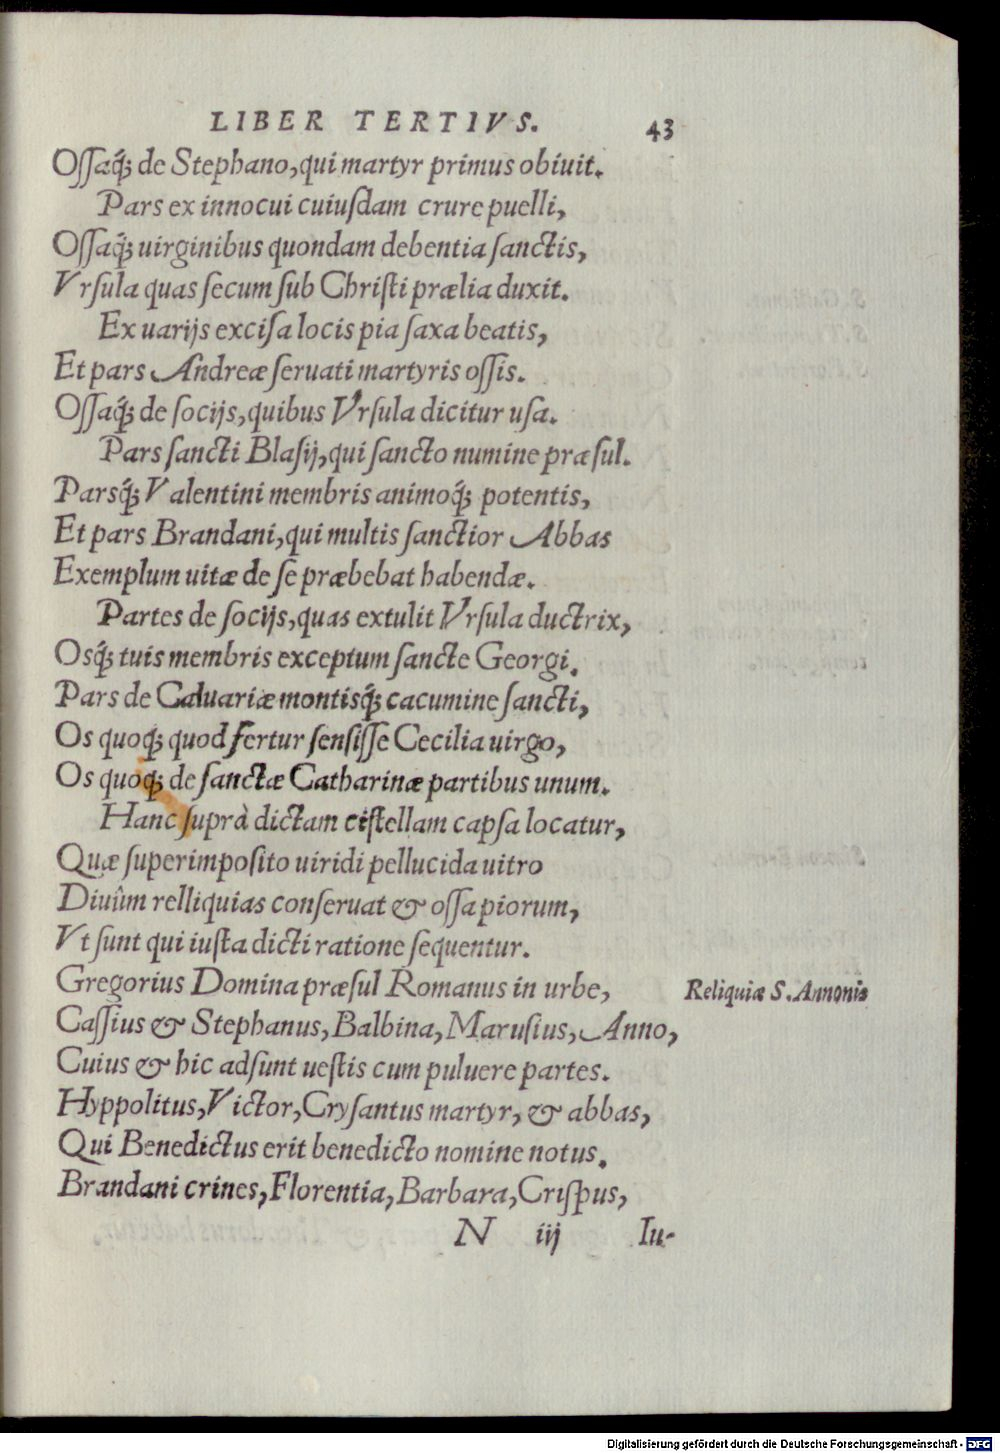 LIBER TERTIVS. 43
Oſſaq́; de Stephano, qui martyr primus obiuit.
Pars ex innocui cuiuſdam crure puelli,
Oſſaq́; uirginibus quondam debentia ſanctis,
Vrſula quas ſecum ſub Chriſti prælia duxit.
Ex uarijs exciſa locis pia ſaxa beatis,
Et pars Andreæ ſeruati martyris oſſis.
Oſſaq́; de ſocijs, quibus Vrſula dicitur uſa.
Pars ſancti Blaſij, qui ſancto numine præſul.
Parsq́; Valentini membris animoq́; potentis,
Et pars Brandani, qui multis ſanctior Abbas
Exemplum uitæ de ſe præbebat habendæ.
Partes de ſocijs, quas extulit Vrſula ductrix,
Osq́; tuis membris exceptum ſancte Georgi.
Pars de Caluariæ montisq́; cacumine ſancti,
Os quoq; quod fertur ſenſiſſe Cecilia uirgo,
Os quoq; de ſanctæ Catharinæ partibus unum.
Hanc ſuprà dictam ciſtellam capſa locatur,
Quæ ſuperimpoſito uiridi pellucida uitro
Diuûm relliquias conſeruat & oſſa piorum,
Vt ſunt qui iuſta dicti ratione ſequentur.
Gregorius Domina præſul Romanus in urbe,
Reliquiæ S. Annonis
Caſſius & Stephanus, Balbina, Maruſius, Anno,
Cuius & hic adſunt ueſtis cum puluere partes.
Hyppolitus, Victor, Cryſantus martyr, & abbas,
Qui Benedictus erit benedicto nomine notus.
Brandani crines, Florentia, Barbara, Criſpus,
N iij Iu-
Digitalisierung gefördert durch die Deutsche Forschungsgemeinschaft - DFG